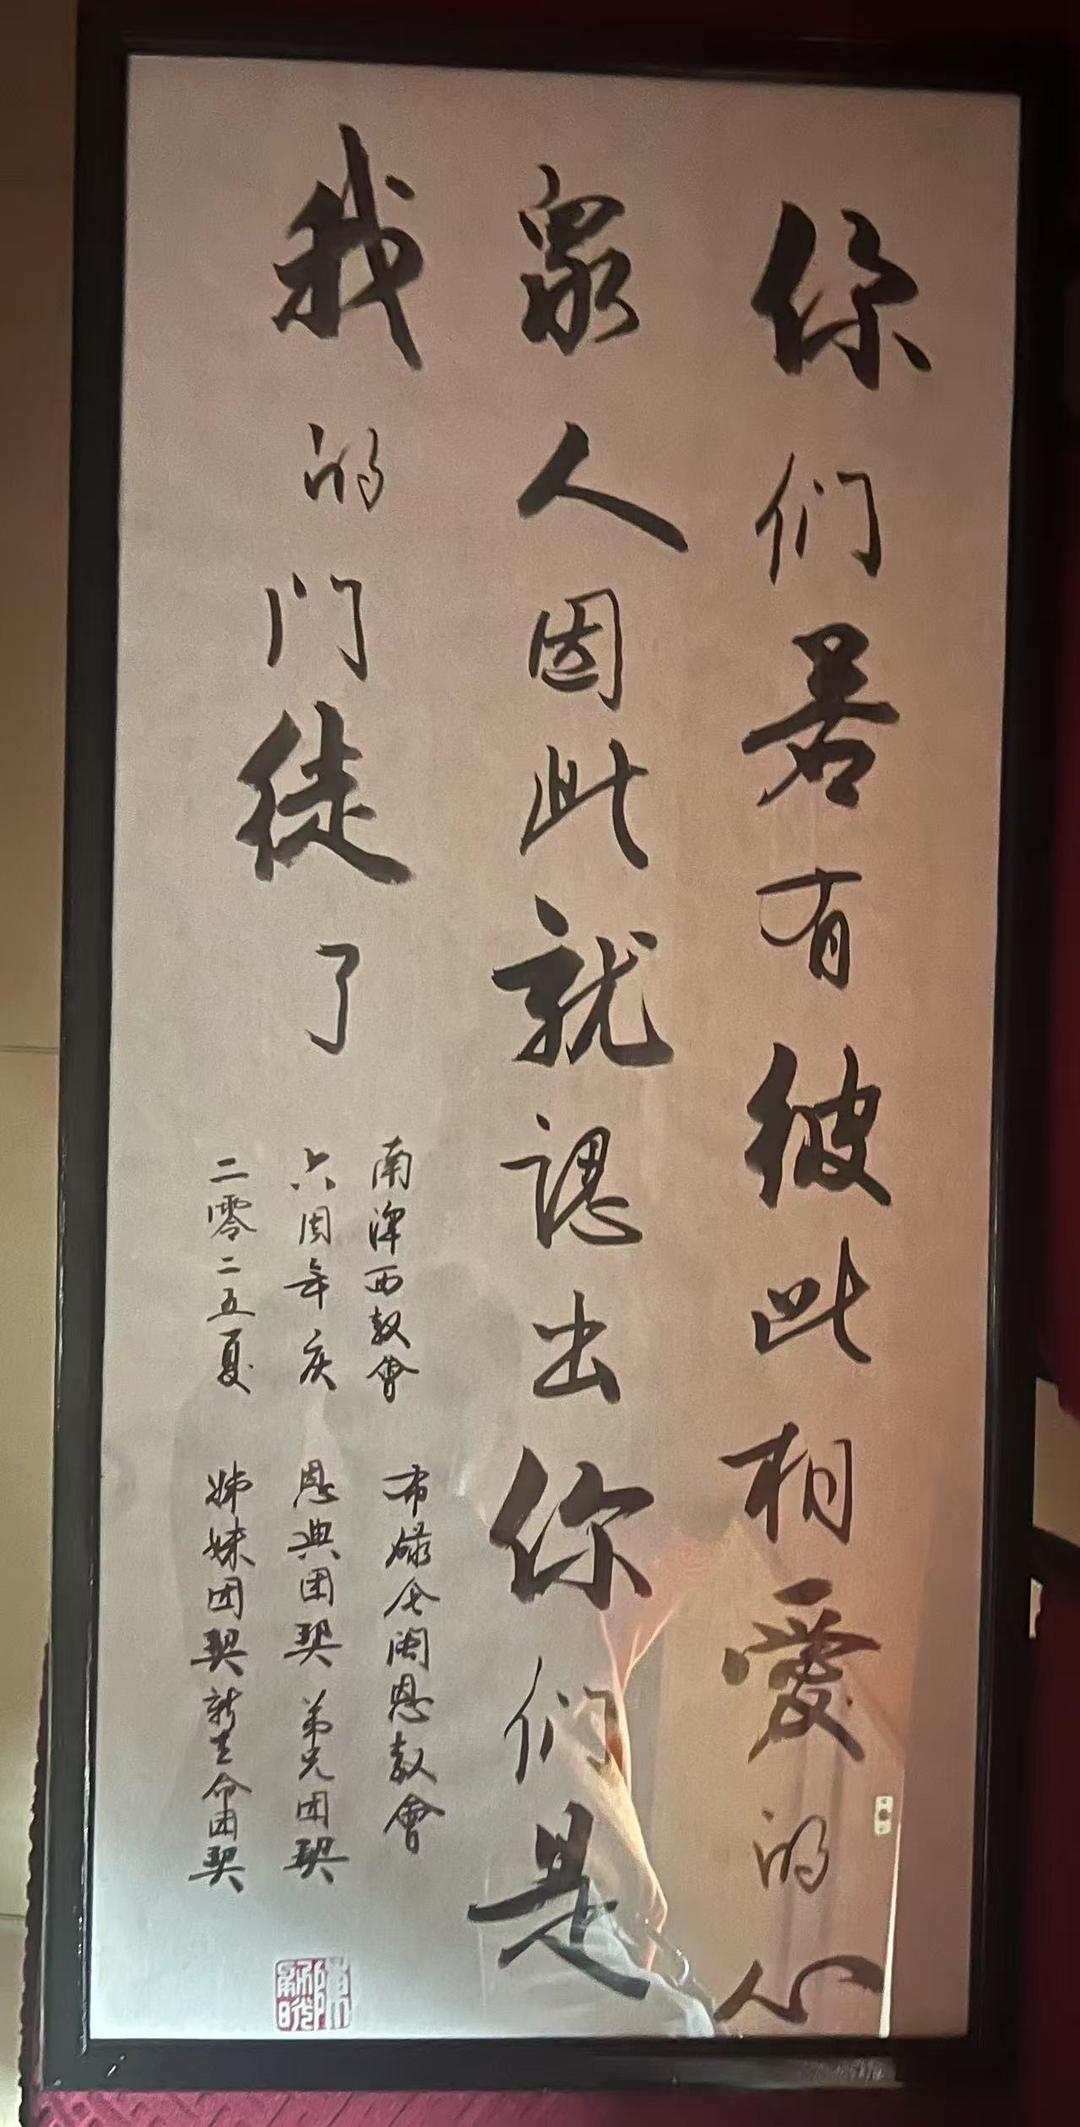 你们若有彼此相愛的心
眾人因此就認出你们是
我的门徒了
南津西教會
六周年庆
二零二五夏
布碌仑闽恩教會
恩典团契 弟兄团契
姊妹团契 新生命团契